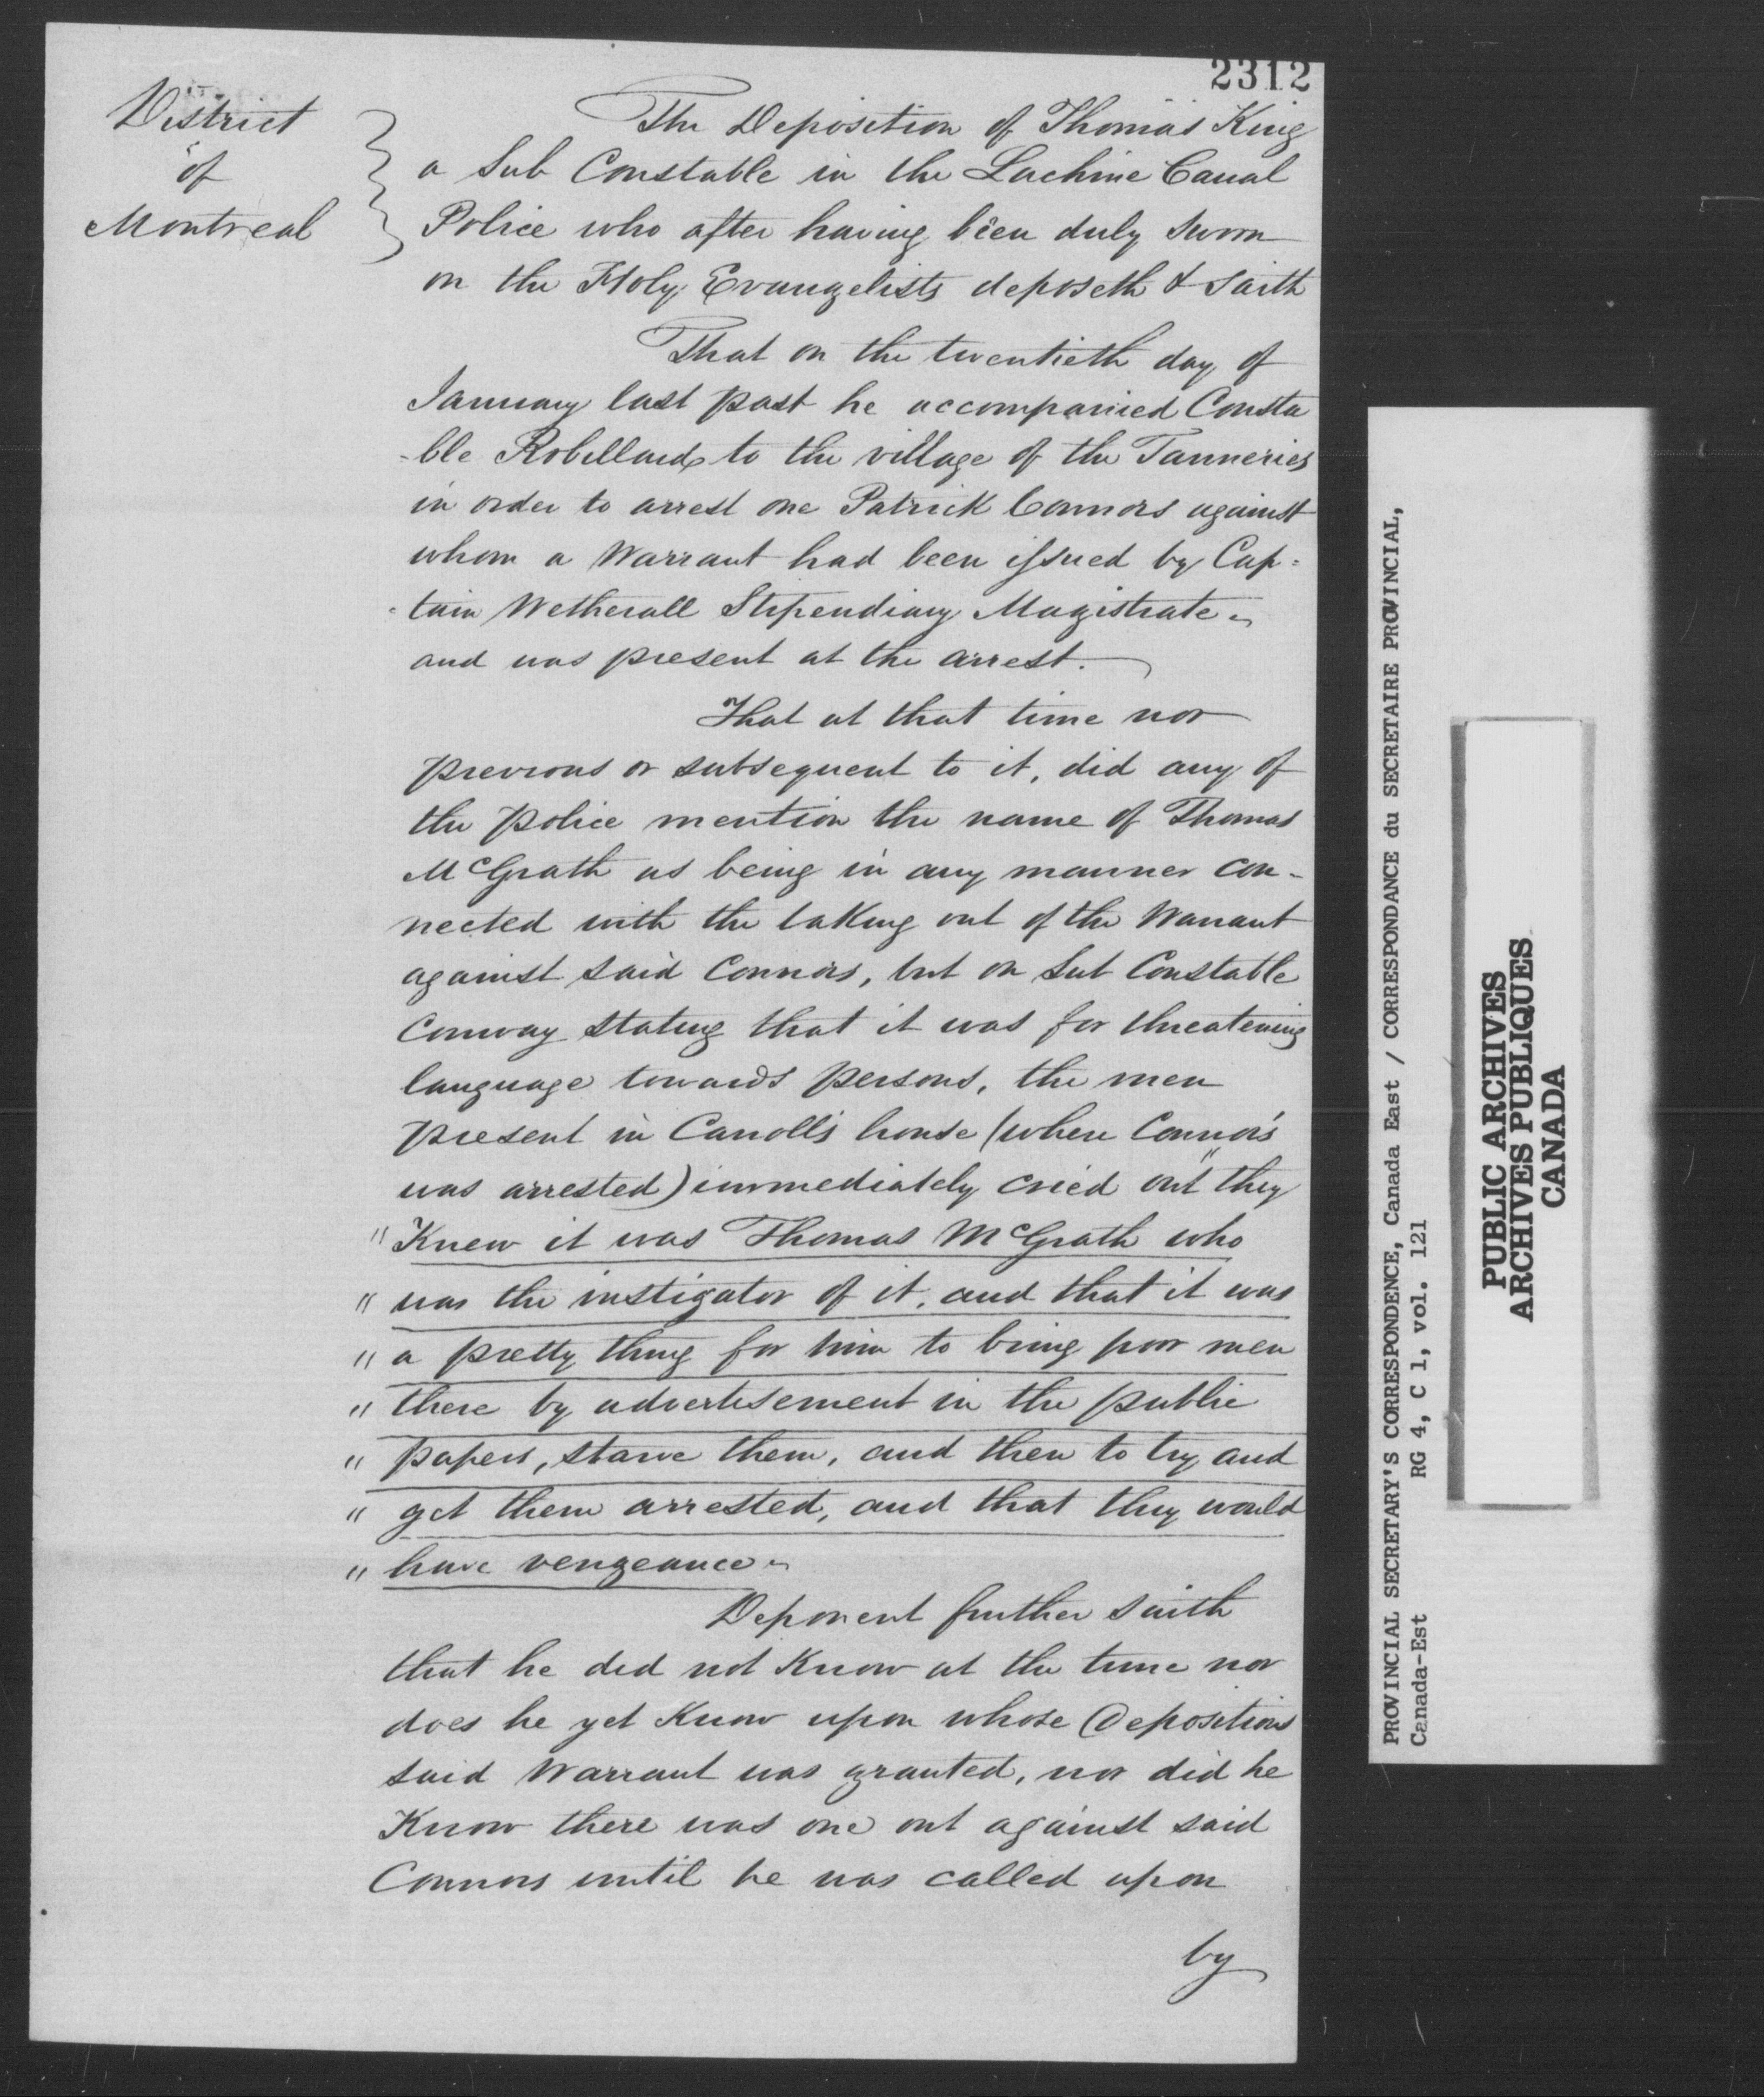 2312
District
of
Montreal
The Deposition of Thomas King
a Sub Constable in the Lachine Canal
Police who after having been duly sworn
on the Holy Evangelists deposeth & saith
That on the twentieth day of
January last past he accompanied Consta
-ble Robillard to the village of the Tanneries
in order to arrest one Patrick Connors against
whom a Warrant had been issued by Cap-
-tain Wetherall Stipendiary Magistrate
and was present at the arrest.
That at that time nor
previous or subsequent to it, did any of
the police mention the name of Thomas
McGrath as being in any manner con-
nected with the taking out of the Warrant
against said Connors, but on Sub Constable
Conway stating that it was for threatening
language towards persons, the men
present in Carroll's house (where Connors
was arrested) immediately cried out "they
" Knew it was Thomas McGrath who
" was the instigator of it, and that it was
" a pretty thing for him to bring poor men
" there by advertisement in the public
" papers, starve them, and then to try and
" get them arrested, and that they would
" have vengeance
Deponent further saith
that he did not Know at the time nor
does he yet Know upon whose Depositions
said Warrant was granted, nor did he
Know there was one out against said
Connors until he was called upon
by
PROVINCIAL SECRETARY'S CORRESPONDENCE, Canada East / CORRESPONDANCE du SECRETAIRE PROVINCIAL,
Canada-Est RG 4, C 1, vol. 121
PUBLIC ARCHIVES
ARCHIVES PUBLIQUES
CANADA